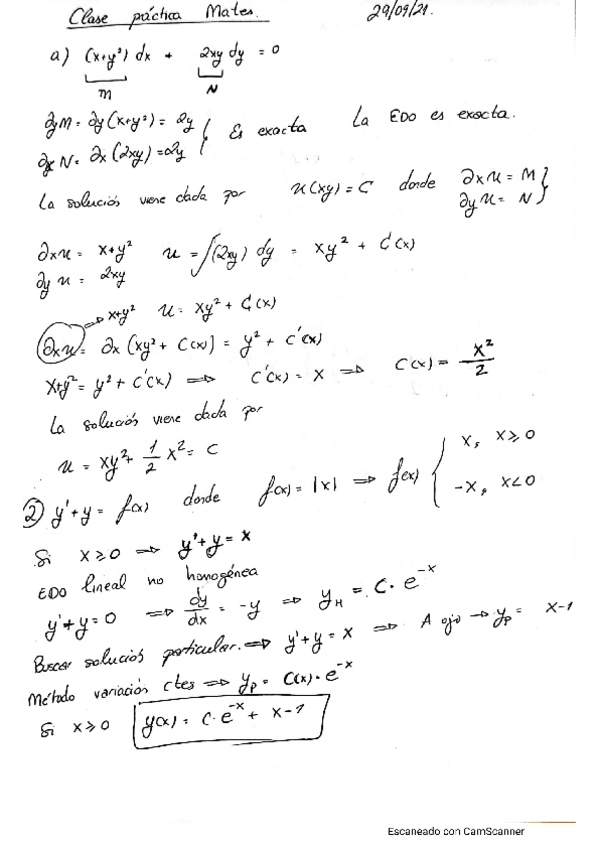 Clase práctica Mates. 29/09/21.
a) (x+y²) dx + 2xy dy = 0
M N
∂yM = ∂y(x+y²) = 2y
∂xN = ∂x(2xy) = 2y } Es exacta La EDO es exacta.
La solución viene dada por u(xy) = C donde ∂xu = M
∂yu = N }
∂xu = x+y² u = ∫(2xy) dy = xy² + C(x)
∂yu = 2xy
→ x+y² u = xy² + C(x)
∂xu = ∂x (xy² + C(x)) = y² + C'(x)
x+y² = y² + C'(x) ⇒ C'(x) = x ⇒ C(x) = x²/2
La solución viene dada por
u = xy² + 1/2 x² = C
② y'+y = f(x) donde f(x) = |x| ⇒ f(x) { x, x≥0
-x, x<0
Si x≥0 ⇒ y'+y = x
EDO lineal no homogénea
y'+y=0 ⇒ dy/dx = -y ⇒ yH = C·e^-x
Buscar solución particular. ⇒ y'+y = x ⇒ A ojo → yp = x-1
Método variación ctes ⇒ yp = C(x)·e^-x
Si x≥0 y(x) = C·e^-x + x-1
Escaneado con CamScanner